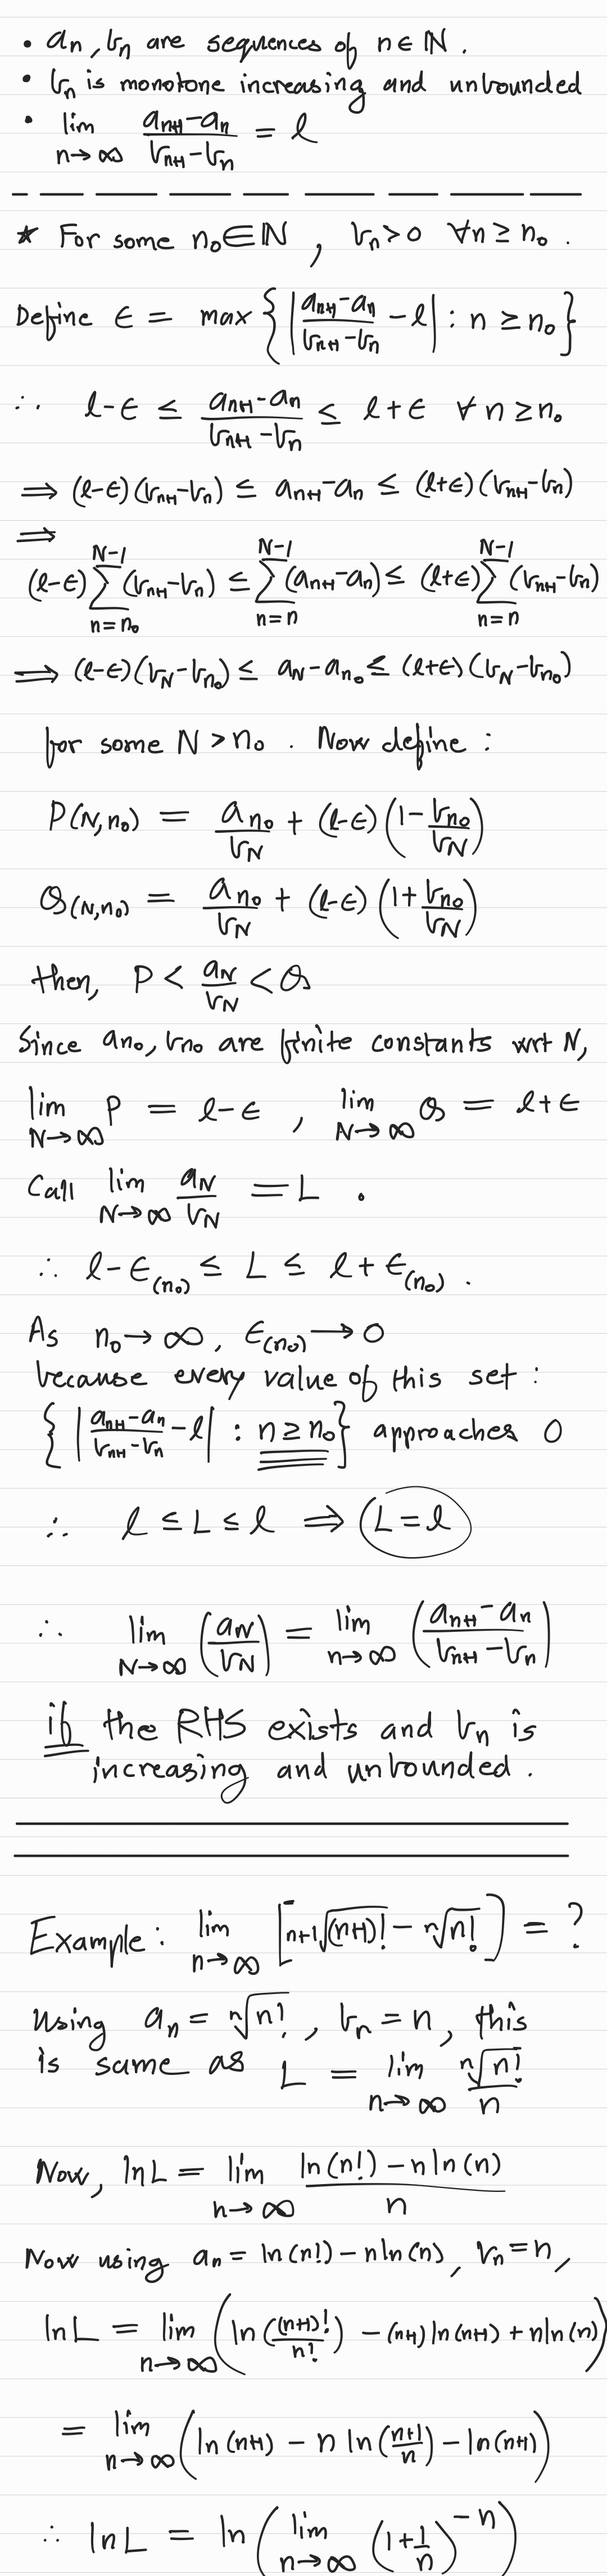 • aₙ, bₙ are sequences of n ∈ ℕ.
• bₙ is monotone increasing and unbounded
• lim_{n→∞} (aₙ₊₁ − aₙ)/(bₙ₊₁ − bₙ) = l
★ For some n₀ ∈ ℕ , bₙ > 0 ∀ n ≥ n₀ .
Define ε = max { |(aₙ₊₁ − aₙ)/(bₙ₊₁ − bₙ) − l| : n ≥ n₀ }
∴ l − ε ≤ (aₙ₊₁ − aₙ)/(bₙ₊₁ − bₙ) ≤ l + ε ∀ n ≥ n₀
⟹ (l−ε)(bₙ₊₁ − bₙ) ≤ aₙ₊₁ − aₙ ≤ (l+ε)(bₙ₊₁ − bₙ)
⟹
(l−ε) ∑_{n=n₀}^{N−1} (bₙ₊₁ − bₙ) ≤ ∑_{n=n}^{N−1} (aₙ₊₁ − aₙ) ≤ (l+ε) ∑_{n=n}^{N−1} (bₙ₊₁ − bₙ)
⟹ (l−ε)(b_N − b_{n₀}) ≤ a_N − a_{n₀} ≤ (l+ε)(b_N − b_{n₀})
for some N > n₀ . Now define :
P(N,n₀) = a_{n₀}/b_N + (l−ε)(1 − b_{n₀}/b_N)
Q(N,n₀) = a_{n₀}/b_N + (l−ε)(1 + b_{n₀}/b_N)
then, P < a_N/b_N < Q
Since a_{n₀}, b_{n₀} are finite constants wrt N,
lim_{N→∞} P = l − ε , lim_{N→∞} Q = l + ε
Call lim_{N→∞} a_N/b_N = L .
∴ l − ε_(n₀) ≤ L ≤ l + ε_(n₀) .
As n₀ → ∞, ε_(n₀) → 0
because every value of this set :
{ |(aₙ₊₁ − aₙ)/(bₙ₊₁ − bₙ) − l| : n ≥ n₀ } approaches 0
∴ l ≤ L ≤ l ⟹ L = l
∴ lim_{N→∞} (a_N/b_N) = lim_{n→∞} ((aₙ₊₁ − aₙ)/(bₙ₊₁ − bₙ))
if the RHS exists and bₙ is
increasing and unbounded .
Example : lim_{n→∞} [ ⁿ⁺¹√(n+1)! − ⁿ√n! ] = ?
Using aₙ = ⁿ√n! , bₙ = n , this
is same as L = lim_{n→∞} ⁿ√n! / n
Now, ln L = lim_{n→∞} (ln(n!) − n ln(n))/n
Now using aₙ = ln(n!) − n ln(n), bₙ = n,
ln L = lim_{n→∞} ( ln((n+1)!/n!) − (n+1) ln(n+1) + n ln(n) )
= lim_{n→∞} ( ln(n+1) − n ln((n+1)/n) − ln(n+1) )
∴ ln L = ln ( lim_{n→∞} (1 + 1/n)^{−n} )